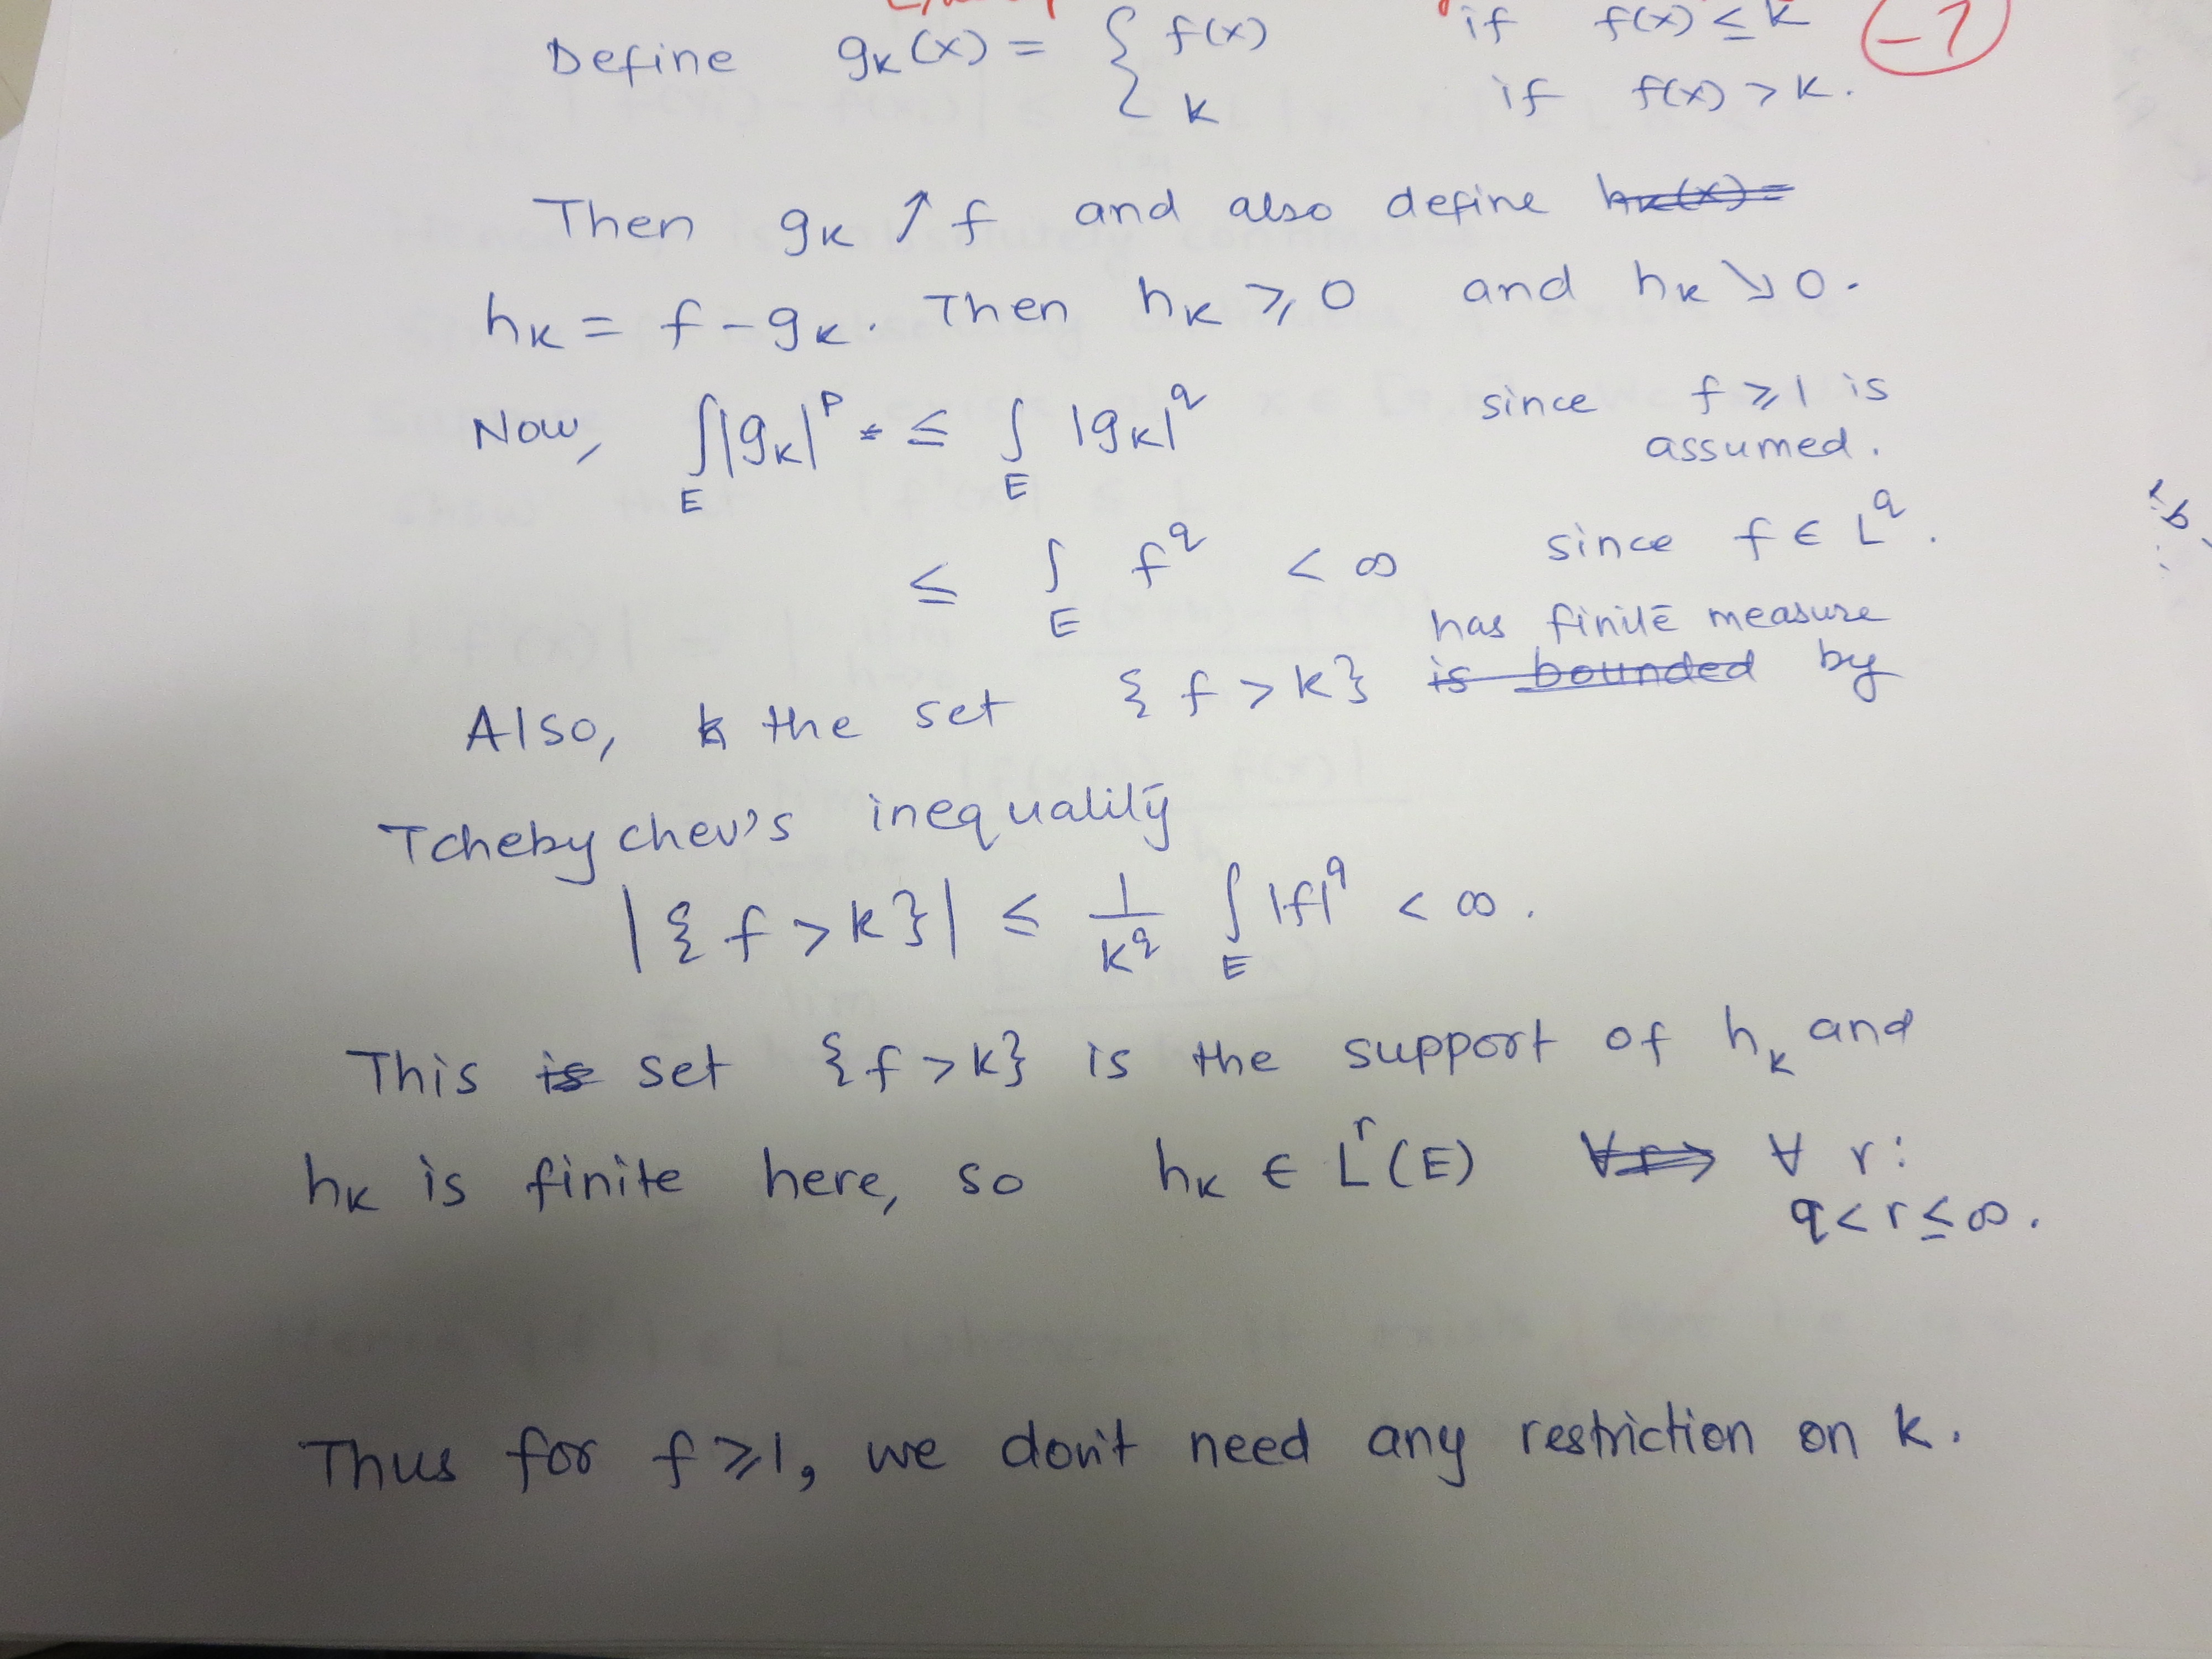 Define gₖ(x) = { f(x) if f(x) ≤ k
k if f(x) > k.
Then gₖ ↗ f and also define ~~hₖ(x)=~~
hₖ = f - gₖ. Then hₖ ≥ 0 and hₖ ↘ 0.
Now, ∫_E |gₖ|^p ≤ ∫_E |gₖ|^q since f ≥ 1 is
assumed.
≤ ∫_E f^q < ∞ since f ∈ L^q.
Also, the set { f > k} ~~is bounded~~ has finite measure by
Tchebychev's inequality
|{ f > k}| ≤ 1/k^q ∫_E |f|^q < ∞.
This ~~is~~ set { f > k} is the support of hₖ and
hₖ is finite here, so hₖ ∈ L^r(E) ∀ r :
q < r ≤ ∞.
Thus for f ≥ 1, we don't need any restriction on k.